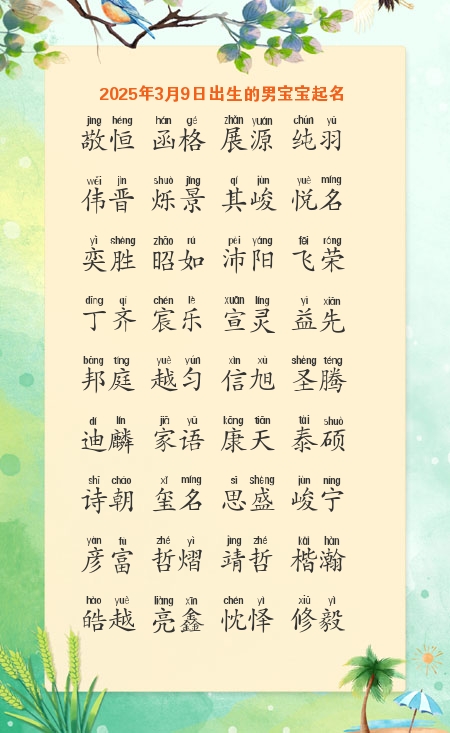 2025年3月9日出生的男宝宝起名
jìng héng hán gé zhǎn yuán chún yǔ
敬恒 函格 展源 纯羽
wěi jìn shuò jǐng qí jùn yuè míng
伟晋 烁景 其峻 悦名
yì shèng zhāo rú pèi yáng fēi róng
奕胜 昭如 沛阳 飞荣
dīng qí chén lè xuān líng yì xiān
丁齐 宸乐 宣灵 益先
bāng tíng yuè yún xìn xù shèng téng
邦庭 越匀 信旭 圣腾
dí lín jiā yǔ kāng tiān tài shuò
迪麟 家语 康天 泰硕
shī cháo xǐ míng sī shèng jùn níng
诗朝 玺名 思盛 峻宁
yàn fù zhé yì jìng zhé kǎi hàn
彦富 哲熠 靖哲 楷瀚
hào yuè liàng xīn chén yì xiū yì
皓越 亮鑫 忱怿 修毅